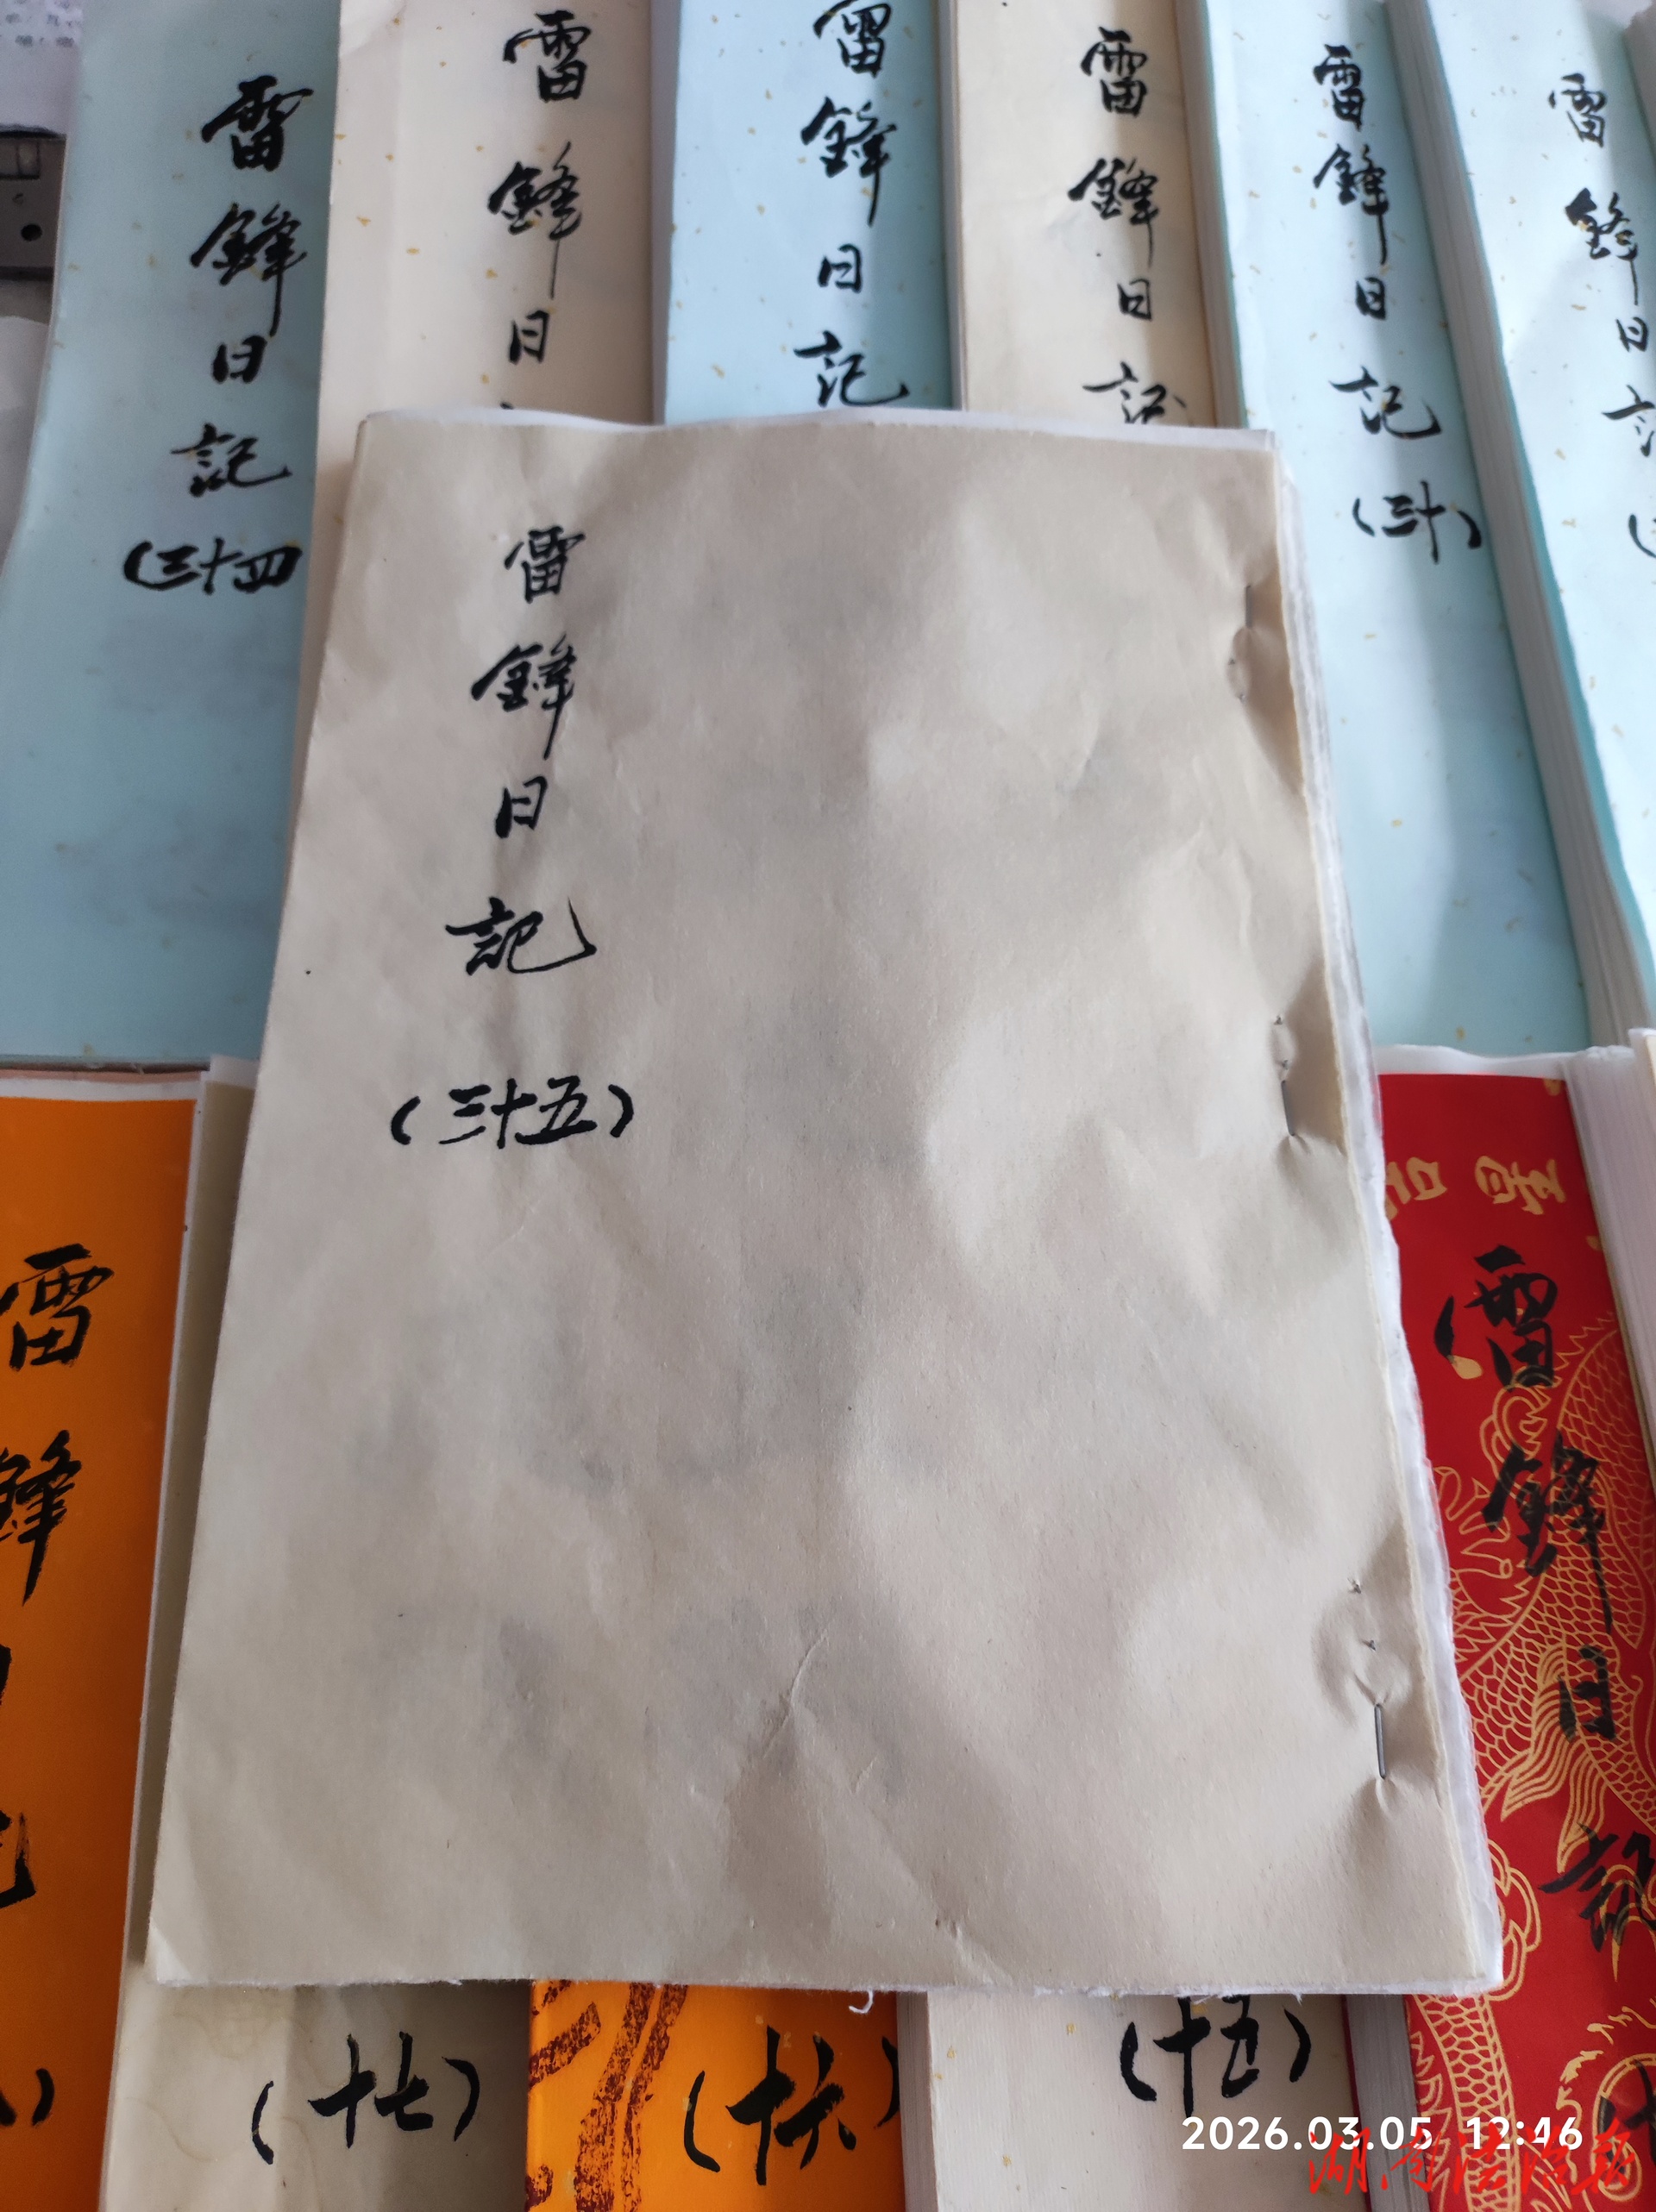 雷鋒日記
(三十四
雷鋒日
雷鋒日記
雷鋒日記
雷鋒日記
(三十)
雷鋒日
雷鋒日記
(三十五)
雷鋒
雷鋒日記
(十七)
(十六)
(十五)
2026.03.05 12:46